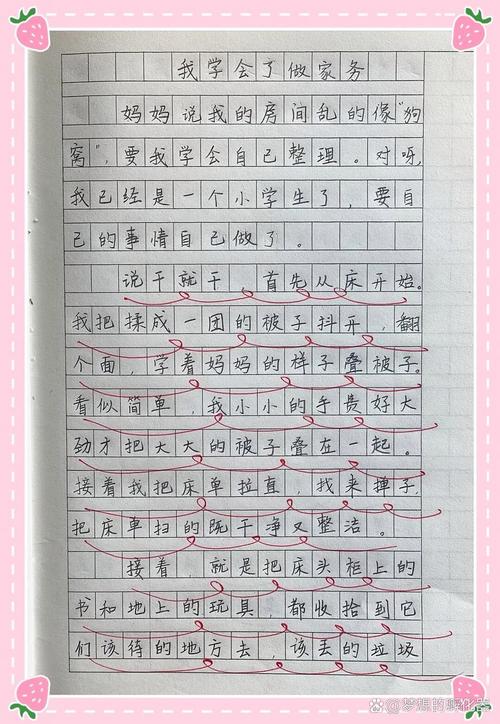 我学会了做家务
妈妈说我的房间乱的像“狗
窝”，要我学会自己整理。对呀，
我已经是一个小学生了，要自
己的事情自己做了。
说干就干，首先从床开始。
我把揉成一团的被子抖开，翻
个面，学着妈妈的样子叠被子。
看似简单，我小小的手费好大
劲才把大大的被子叠在一起。
接着我把床单拉直，找来掸子，
把床单扫的既干净又整洁。
接着，就是把床头柜上的
书和地上的玩具，都收拾到它
们该待的地方去，该丢的垃圾